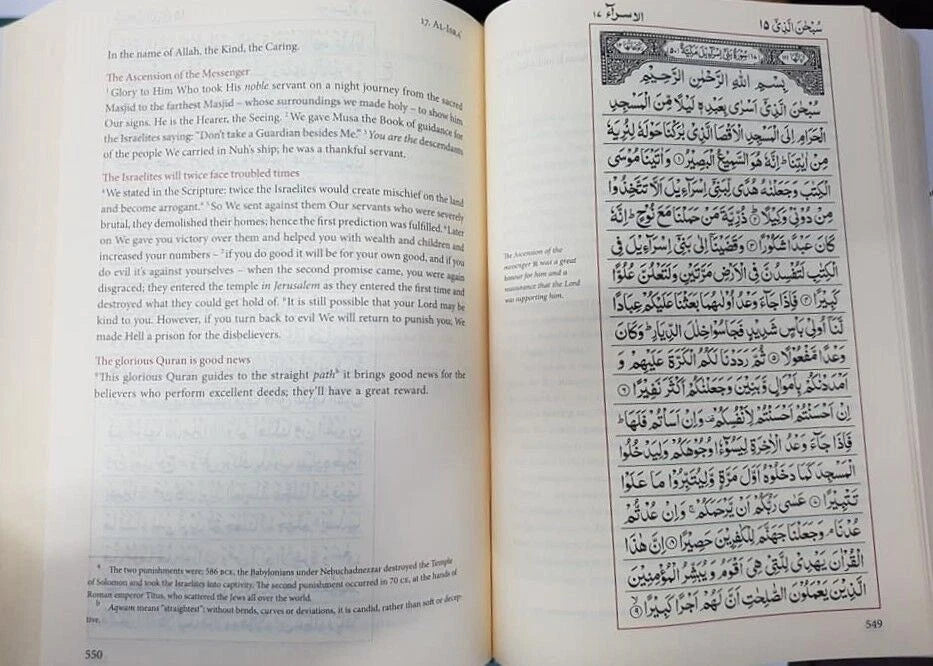 الاسراء ۱۷
سُبْحٰنَ الَّذِیْۤ ۱۵
بِسْمِ اللّٰهِ الرَّحْمٰنِ الرَّحِیْمِ
سُبْحٰنَ الَّذِیْۤ اَسْرٰی بِعَبْدِهٖ لَیْلًا مِّنَ الْمَسْجِدِ
الْحَرَامِ اِلَی الْمَسْجِدِ الْاَقْصَا الَّذِیْ بٰرَكْنَا حَوْلَهٗ لِنُرِیَهٗ
مِنْ اٰیٰتِنَا ؕ اِنَّهٗ هُوَ السَّمِیْعُ الْبَصِیْرُ ۱ وَ اٰتَیْنَا مُوْسَی
الْكِتٰبَ وَ جَعَلْنٰهُ هُدًی لِّبَنِیْۤ اِسْرَآءِیْلَ اَلَّا تَتَّخِذُوْا
مِنْ دُوْنِیْ وَكِیْلًا ۲ ذُرِّیَّةَ مَنْ حَمَلْنَا مَعَ نُوْحٍ ؕ اِنَّهٗ
كَانَ عَبْدًا شَكُوْرًا ۳ وَ قَضَیْنَاۤ اِلٰی بَنِیْۤ اِسْرَآءِیْلَ فِی
الْكِتٰبِ لَتُفْسِدُنَّ فِی الْاَرْضِ مَرَّتَیْنِ وَ لَتَعْلُنَّ عُلُوًّا
كَبِیْرًا ۴ فَاِذَا جَآءَ وَعْدُ اُوْلٰىهُمَا بَعَثْنَا عَلَیْكُمْ عِبَادًا
لَّنَاۤ اُولِیْ بَاْسٍ شَدِیْدٍ فَجَاسُوْا خِلٰلَ الدِّیَارِ ؕ وَ كَانَ
وَعْدًا مَّفْعُوْلًا ۵ ثُمَّ رَدَدْنَا لَكُمُ الْكَرَّةَ عَلَیْهِمْ وَ
اَمْدَدْنٰكُمْ بِاَمْوَالٍ وَّ بَنِیْنَ وَ جَعَلْنٰكُمْ اَكْثَرَ نَفِیْرًا ۶
اِنْ اَحْسَنْتُمْ اَحْسَنْتُمْ لِاَنْفُسِكُمْ ۫ وَ اِنْ اَسَاْتُمْ فَلَهَا ؕ
فَاِذَا جَآءَ وَعْدُ الْاٰخِرَةِ لِیَسُوْٓءٗا وُجُوْهَكُمْ وَ لِیَدْخُلُوا
الْمَسْجِدَ كَمَا دَخَلُوْهُ اَوَّلَ مَرَّةٍ وَّ لِیُتَبِّرُوْا مَا عَلَوْا
تَتْبِیْرًا ۷ عَسٰی رَبُّكُمْ اَنْ یَّرْحَمَكُمْ ۚ وَ اِنْ عُدْتُّمْ
عُدْنَا ۘ وَ جَعَلْنَا جَهَنَّمَ لِلْكٰفِرِیْنَ حَصِیْرًا ۸ اِنَّ هٰذَا
الْقُرْاٰنَ یَهْدِیْ لِلَّتِیْ هِیَ اَقْوَمُ وَ یُبَشِّرُ الْمُؤْمِنِیْنَ
الَّذِیْنَ یَعْمَلُوْنَ الصّٰلِحٰتِ اَنَّ لَهُمْ اَجْرًا كَبِیْرًا ۹
The Ascension of the
messenger ﷺ was a great
honour for him and a
reassurance that the Lord
was supporting him.
549
17. Al-Isra'
In the name of Allah, the Kind, the Caring.
The Ascension of the Messenger
¹Glory to Him Who took His noble servant on a night journey from the sacred
Masjid to the farthest Masjid – whose surroundings we made holy – to show him
Our signs. He is the Hearer, the Seeing. ²We gave Musa the Book of guidance for
the Israelites saying: "Don't take a Guardian besides Me." ³You are the descendants
of the people We carried in Nuh's ship; he was a thankful servant.
The Israelites will twice face troubled times
⁴We stated in the Scripture: twice the Israelites would create mischief on the land
and become arrogant.ᵃ ⁵So We sent against them Our servants who were severely
brutal, they demolished their homes; hence the first prediction was fulfilled. ⁶Later
on We gave you victory over them and helped you with wealth and children and
increased your numbers – ⁷if you do good it will be for your own good, and if you
do evil it's against yourselves – when the second promise came, you were again
disgraced; they entered the temple in Jerusalem as they entered the first time and
destroyed what they could get hold of. ⁸It is still possible that your Lord may be
kind to you. However, if you turn back to evil We will return to punish you; We
made Hell a prison for the disbelievers.
The glorious Quran is good news
⁹This glorious Quran guides to the straight pathᵇ it brings good news for the
believers who perform excellent deeds; they'll have a great reward.
ᵃ The two punishments were; 586 BCE, the Babylonians under Nebuchadnezzar destroyed the Temple
of Solomon and took the Israelites into captivity. The second punishment occurred in 70 CE, at the hands of
Roman emperor Titus, who scattered the Jews all over the world.
ᵇ Aqwam means "straightest"; without bends, curves or deviations, it is candid, rather than soft or decep-
tive.
550